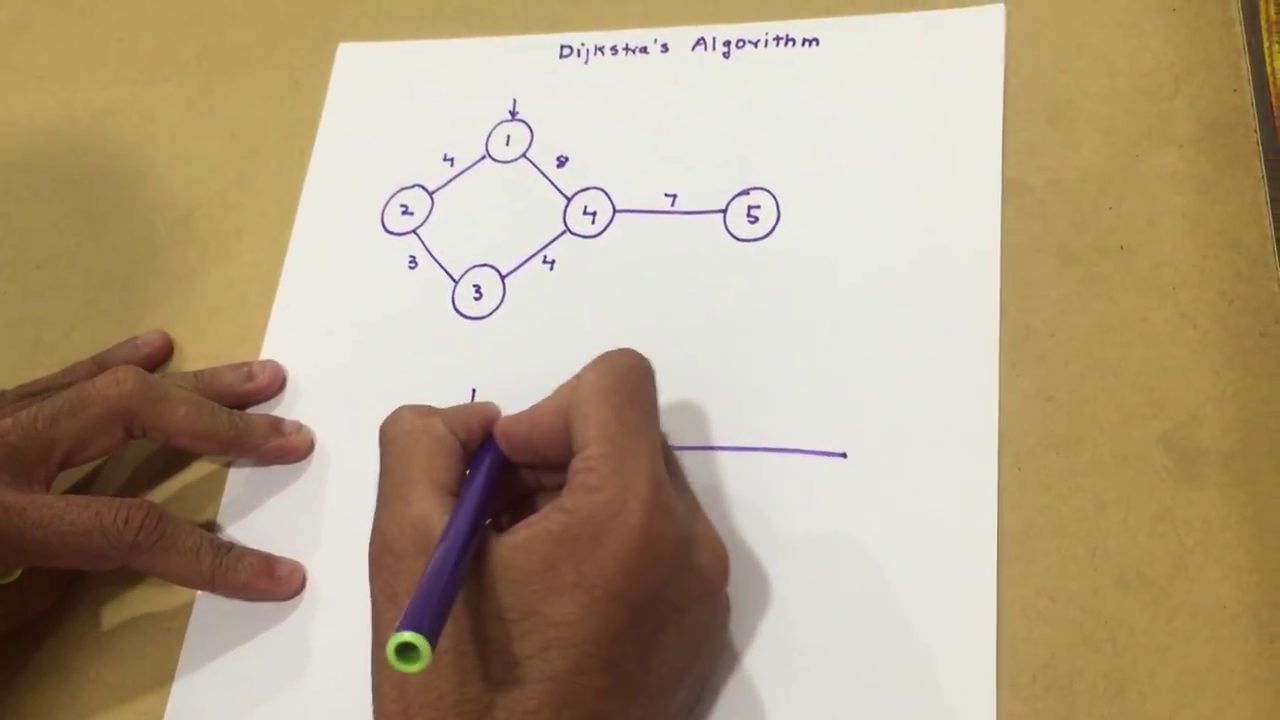 Dijkstra's Algorithm
1
4 8
2 4 7 5
3 4
3